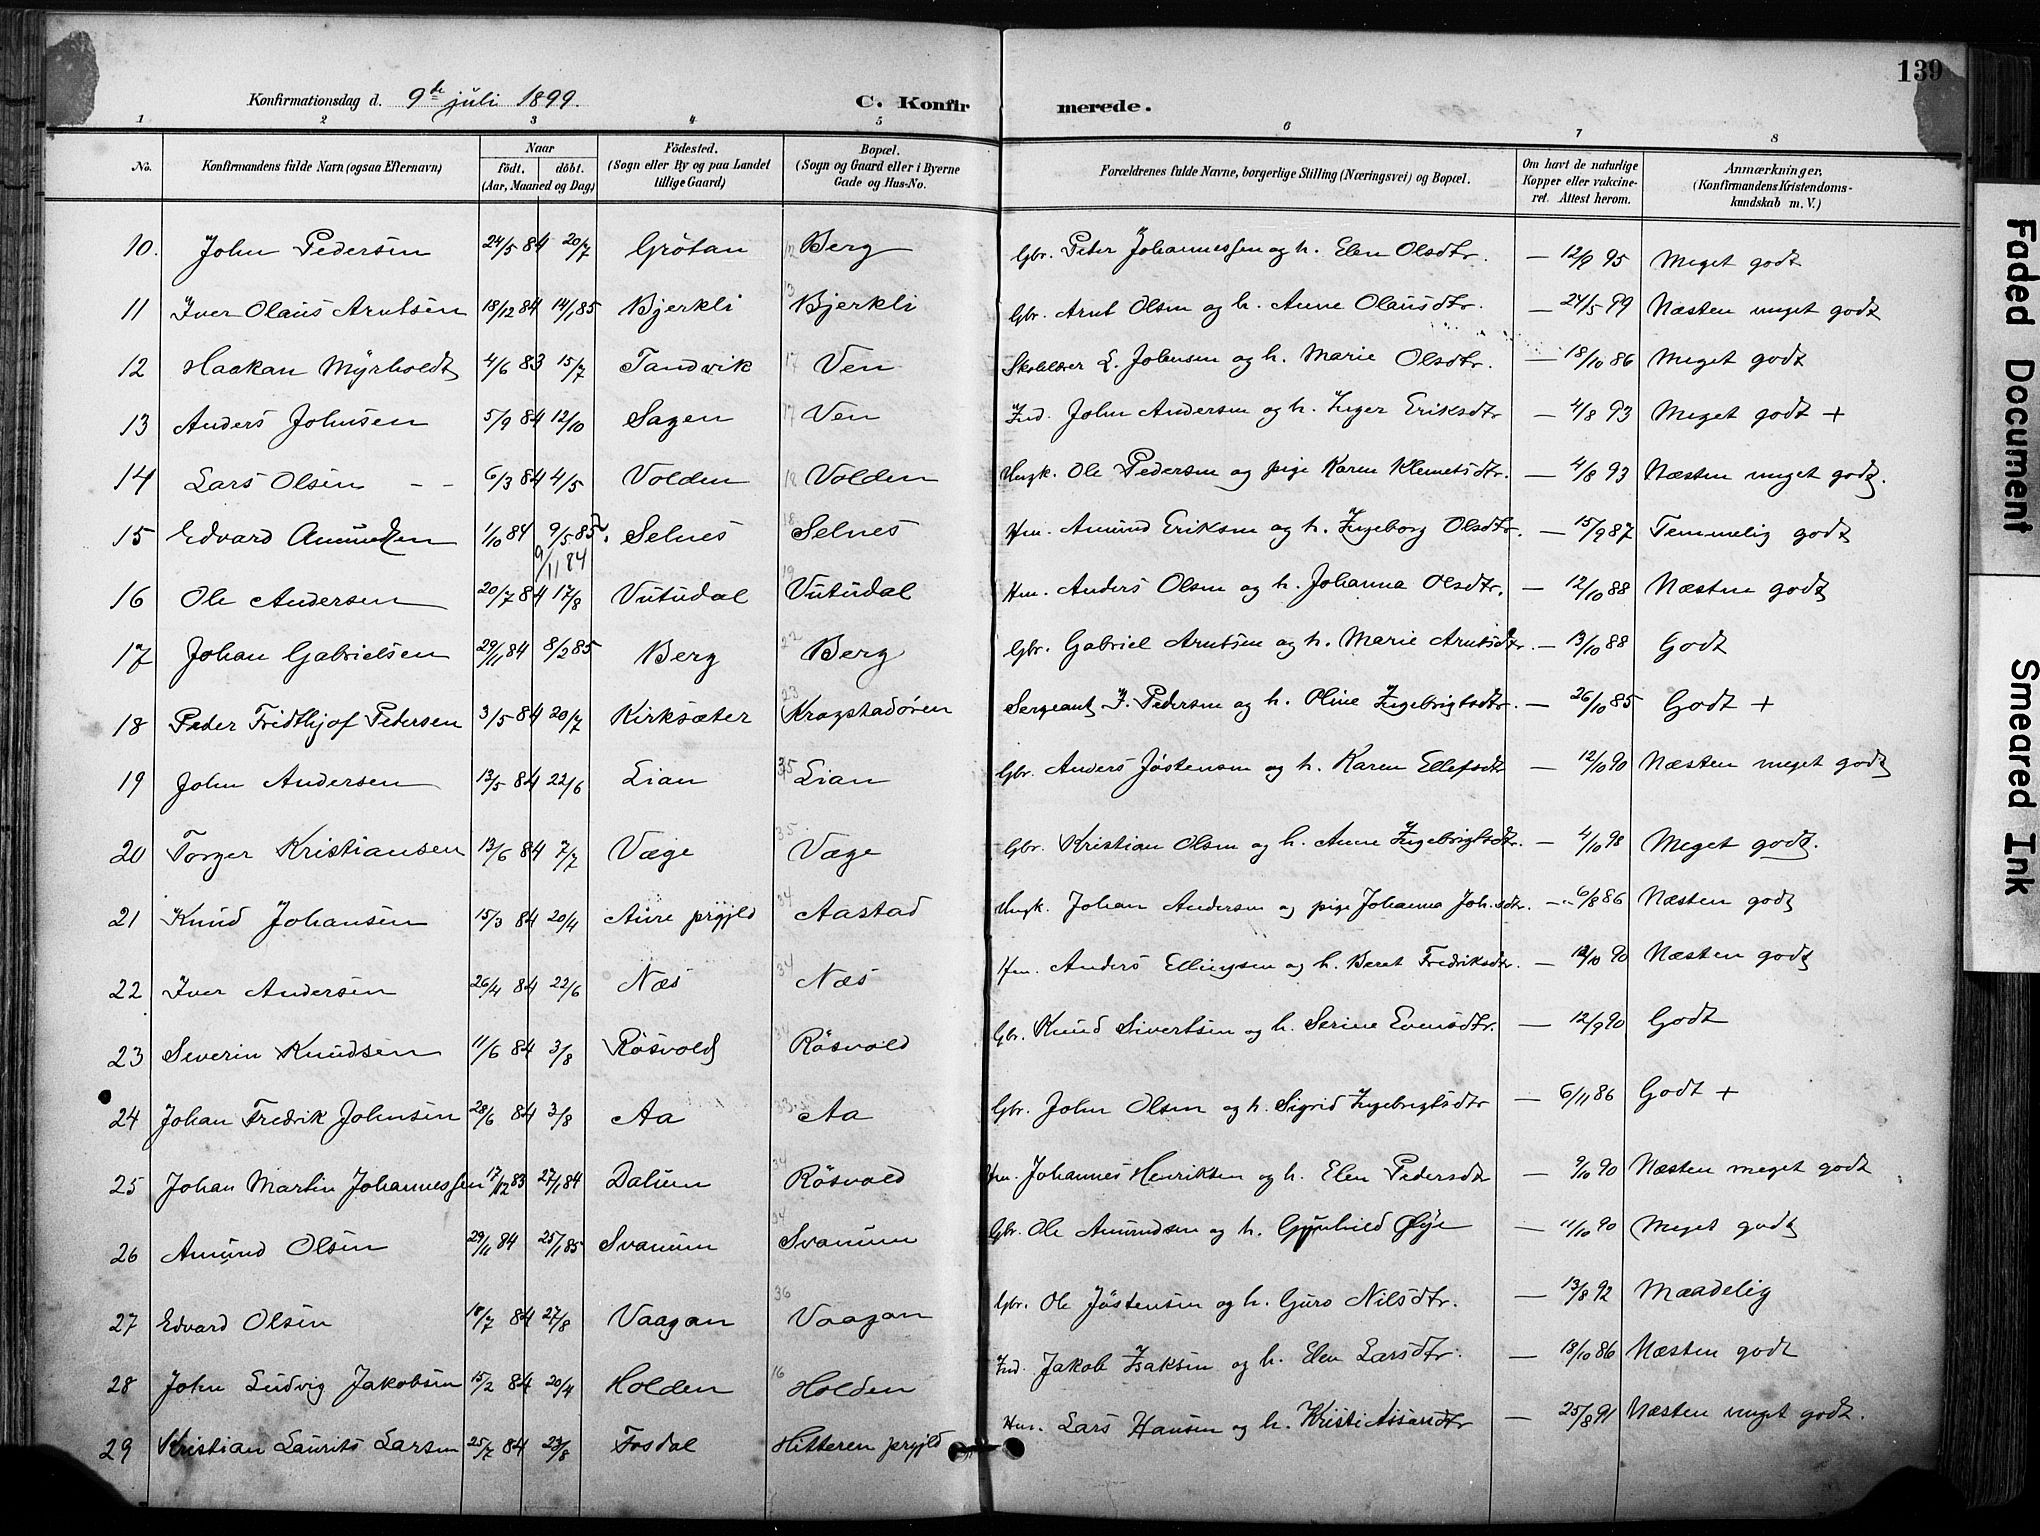 139
Konfirmationsdag d. 9de juli 1899.
C. Konfirmerede.
1 2 3 4 5 6 7 8
No.
Konfirmandens fulde Navn (ogsaa Efternavn)
Naar
født. døbt.
(Aar, Maaned og Dag)
Fødested.
(Sogn eller By og paa Landet
tillige Gaard)
Bopæl.
(Sogn og Gaard eller i Byerne
Gade og Hus-No.
Forældrenes fulde Navne, borgerlige Stilling (Næringsvei) og Bopæl.
Om havt de naturlige
Kopper eller vakcine-
ret. Attest herom.
Anmærkninger.
(Konfirmandens Kristendoms-
kundskab m. V.)
10. John Pedersen 24/5 84 20/7 Grøtan 12 Berg Gbr. Peder Johannessen og h. Elen Olsdtr. — 12/9 95 Meget godt
11 Iver Olaus Arntsen 18/12 84 14/1 85 Bjerkli 13 Bjerkli Gbr. Arnt Olsen og h. Anne Olausdtr. — 24/5 99 Næsten meget godt
12 Haakan Myrholdt 4/6 83 15/7 Tandvik 17 Ven Skolelærer L. Johnsen og h. Marie Olsdtr. — 18/10 86 Meget godt
13 Anders Johnsen 5/9 84 12/10 Sagen 17 Ven Ind. John Andersen og h. Inger Eriksdtr — 4/8 93 Meget godt +
14 Lars Olsen - - 6/3 84 4/5 Volden 18 Volden Ungk. Ole Pedersen og pige Karen Klemetsdtr. — 4/8 93 Næsten meget godt.
15 Edvard Amundsen 1/10 84 9/5 85. Selnes 18 Selnes Hm. Amund Eriksen og h. Ingeborg Olsdtr. — 15/9 87 Temmelig godt
9/11 84
16 Ole Andersen 20/7 84 17/8 Vutudal 19 Vutudal Hm. Anders Olsen og h. Johanna Olsdtr. — 12/10 88 Næsten godt
17 Johan Gabrielsen 29/11 84 8/2 85 Berg 22 Berg Gbr. Gabriel Arntsen og h. Marie Arntsdtr. — 13/10 88 Godt
18 Peder Fridthjof Pedersen 3/5 84 20/7 Kirksæter 23 Krogstadøren Sergeant J. Pedersen og h. Oline Ingebrigtsdtr. — 26/10 85 Godt +
19 John Andersen 13/5 84 22/6 Lian 35 Lian Gbr. Anders Jøstensen og h. Karen Ellefsdtr — 12/10 90 Næsten meget godt
20 Torger Kristiansen 13/6 84 7/7 Væge 35 Væge Gbr. Kristian Olsen og h. Anne Ingebrigtsdtr. — 4/10 98 Meget godt.
21 Knud Johansen 15/3 84 20/4 Aure prgjld 34 Aastad Ungk. Johan Andersen og pige Johanna Joh.sdtr. — 6/8 86 Næsten godt
22 Iver Andersen 26/4 84 22/6 Næs 34 Næs Hm. Anders Ellingsen og h. Beret Fredriksdtr. — 12/10 90 Næsten godt
23 Severin Knudsen 11/6 84 3/8 Røsvold 34 Røsvold Gbr. Knud Sivertsen og h. Serine Evensdtr. — 12/9 90 Godt
24 Johan Fredrik Johnsen 28/6 84 3/8 Aa Aa Gbr. John Olsen og h. Sigrid Ingebrigtsdtr — 6/11 86 Godt +
25 Johan Martin Johannessen 17/12 83 27/1 84 Dalum 34 Røsvold Hm. Johannes Henriksen og h. Elen Pedersdtr — 9/10 90 Næsten meget godt
26 Amund Olsen 29/11 84 25/1 85 Svanum 34 Svanum Gbr. Ole Amundsen og h. Gunhild Øye — 11/10 90 Meget godt
27 Edvard Olsen 18/7 84 27/8 Vaagan 36 Vaagan Gbr. Ole Jøstensen og h. Guro Nilsdtr. — 13/8 92 Maadelig
28 John Ludvig Jakobsen 15/2 84 20/4 Holden 16 Holden Ind. Jakob Isaksen og h. Elen Larsdtr. — 18/10 86 Næsten godt
29 Kristian Laurits Larsen 25/7 84 23/8 Fosdal Hitteren prgjld Hm. Lars Hansen og h. Kristi Assersdtr — 25/8 91 Næsten meget godt.
Faded Document
Smeared Ink